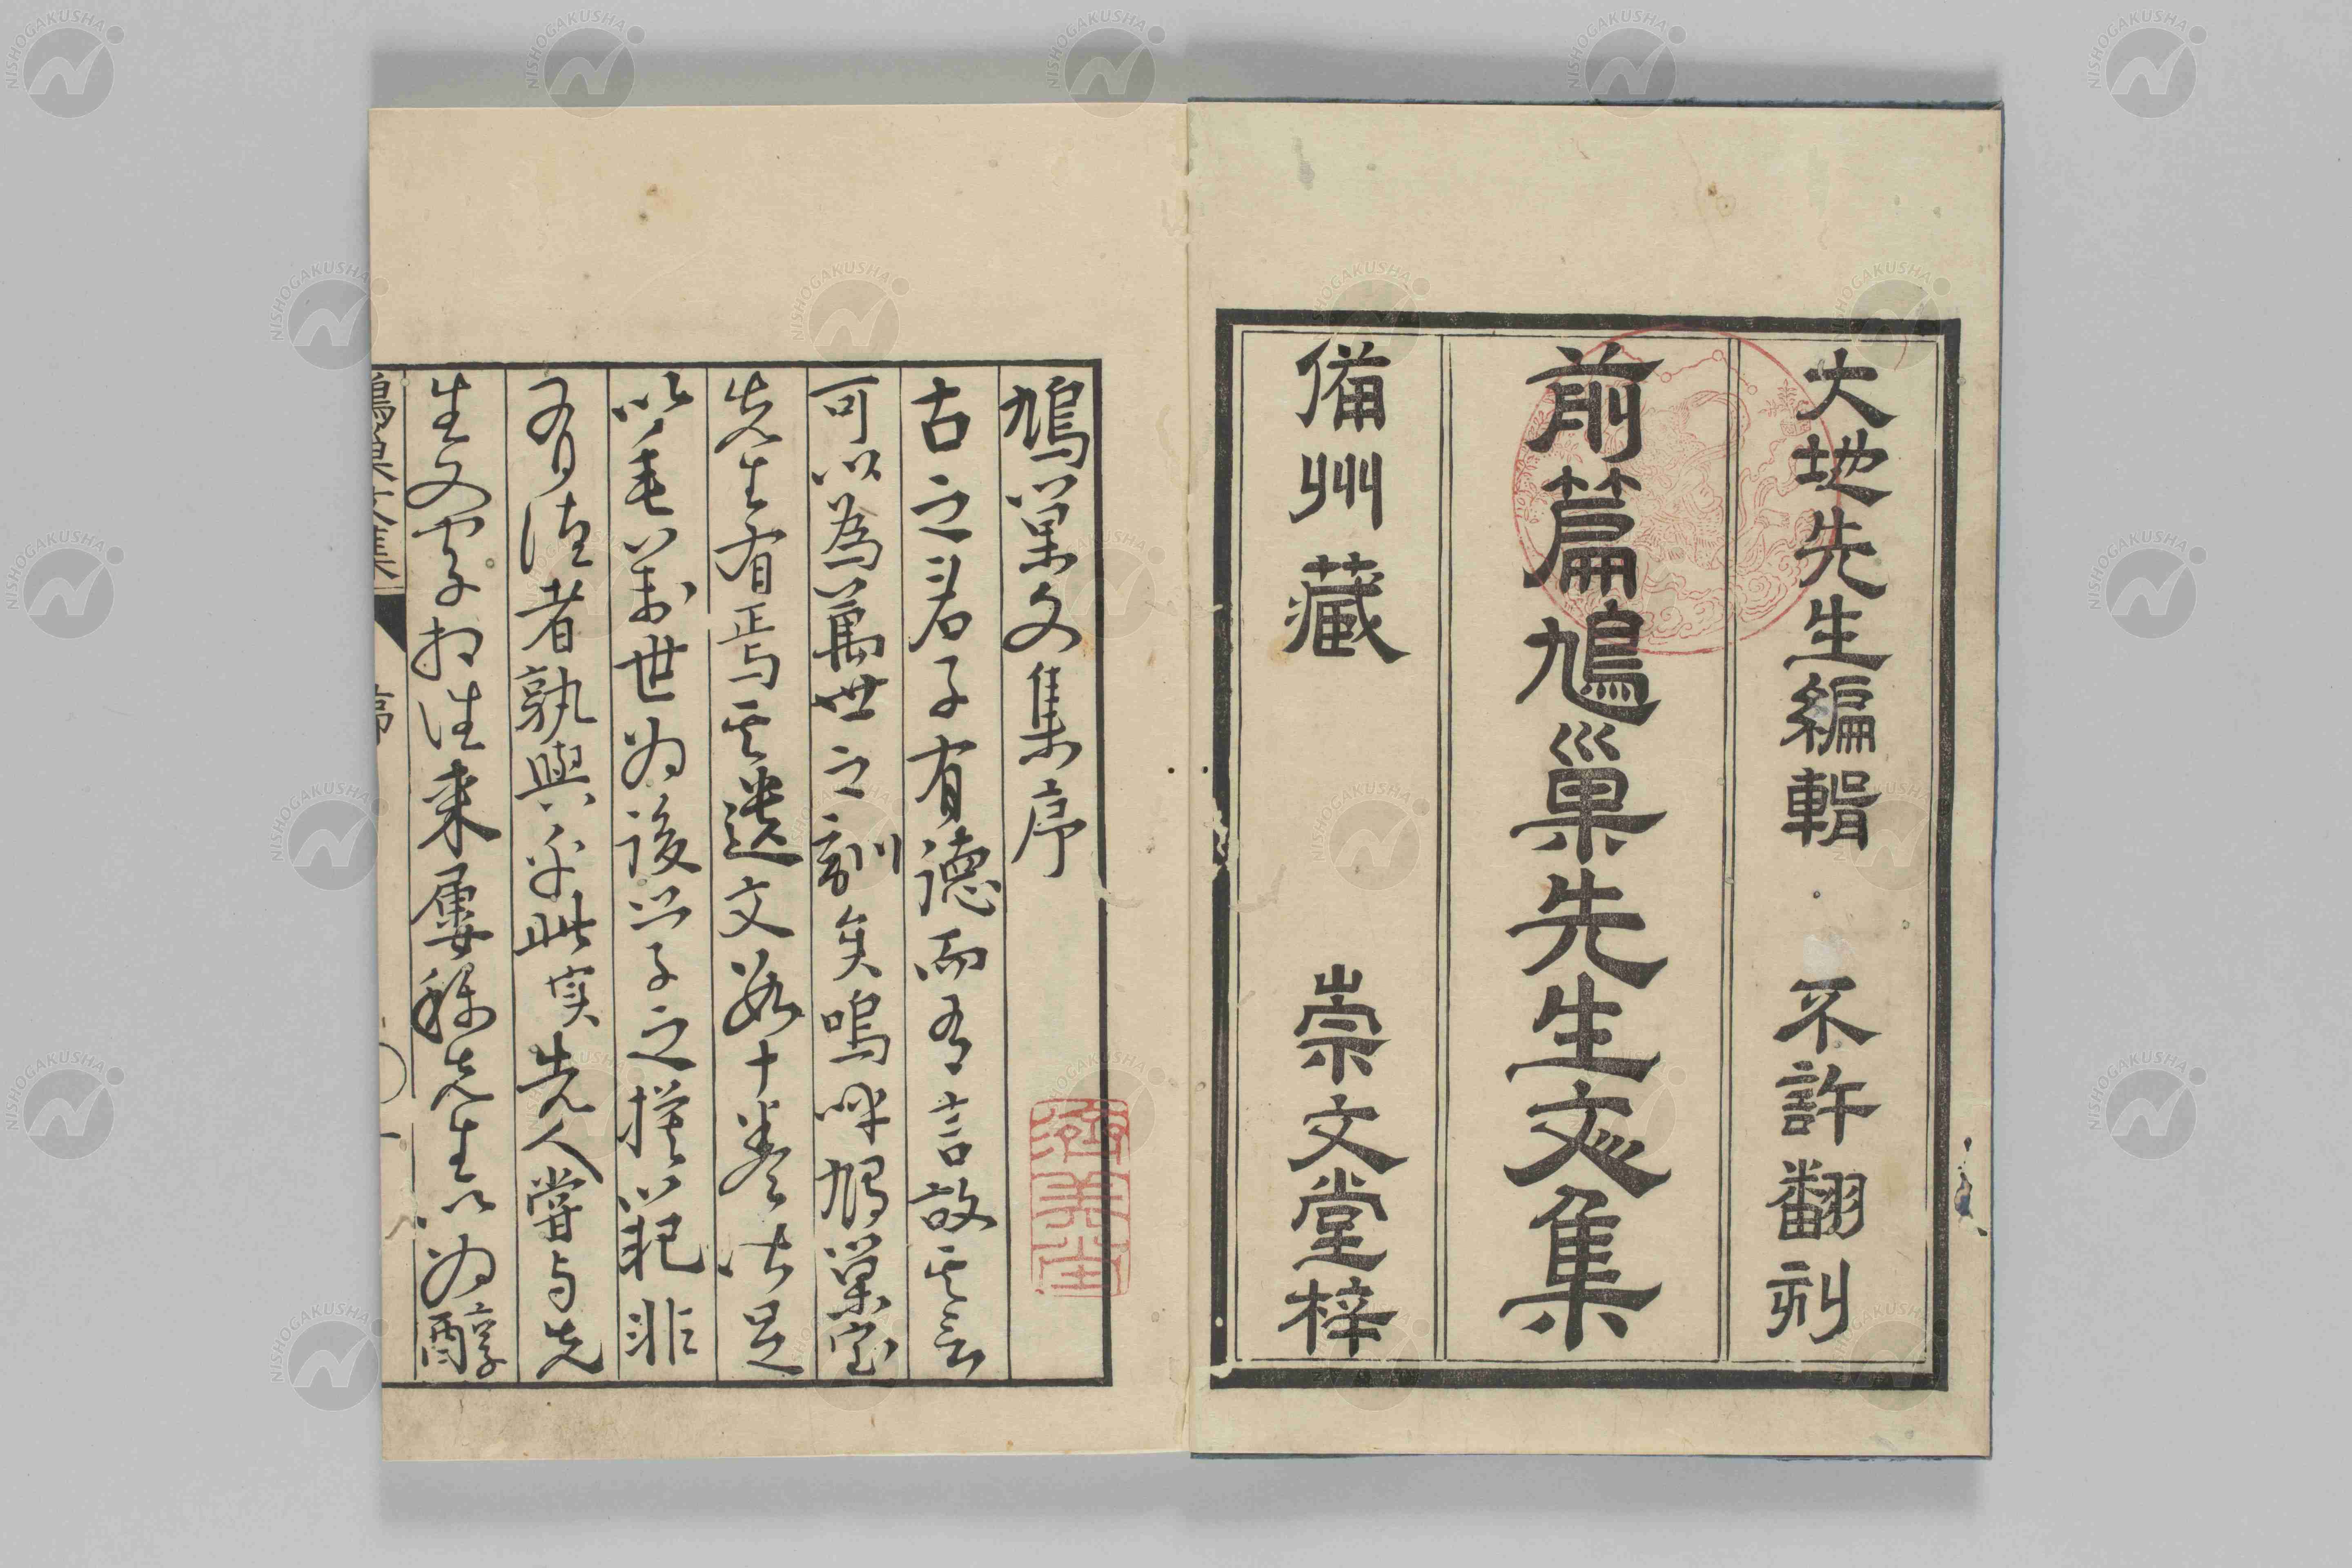 大地先生編輯 不許翻刻
前篇鳩巢先生文集
備州藏 崇文堂梓
鳩巢文集序
古之君子有德而有言故其言
可以為萬世之訓矣嗚呼鳩巢室
先生有焉其遺文若十卷皆足
以垂萬世為後学子之模範非
有德者孰與乎此實先人嘗与先
生文字相往来屢稱先生以為醇
鳩巢文集 序 一
NISHOGAKUSHA